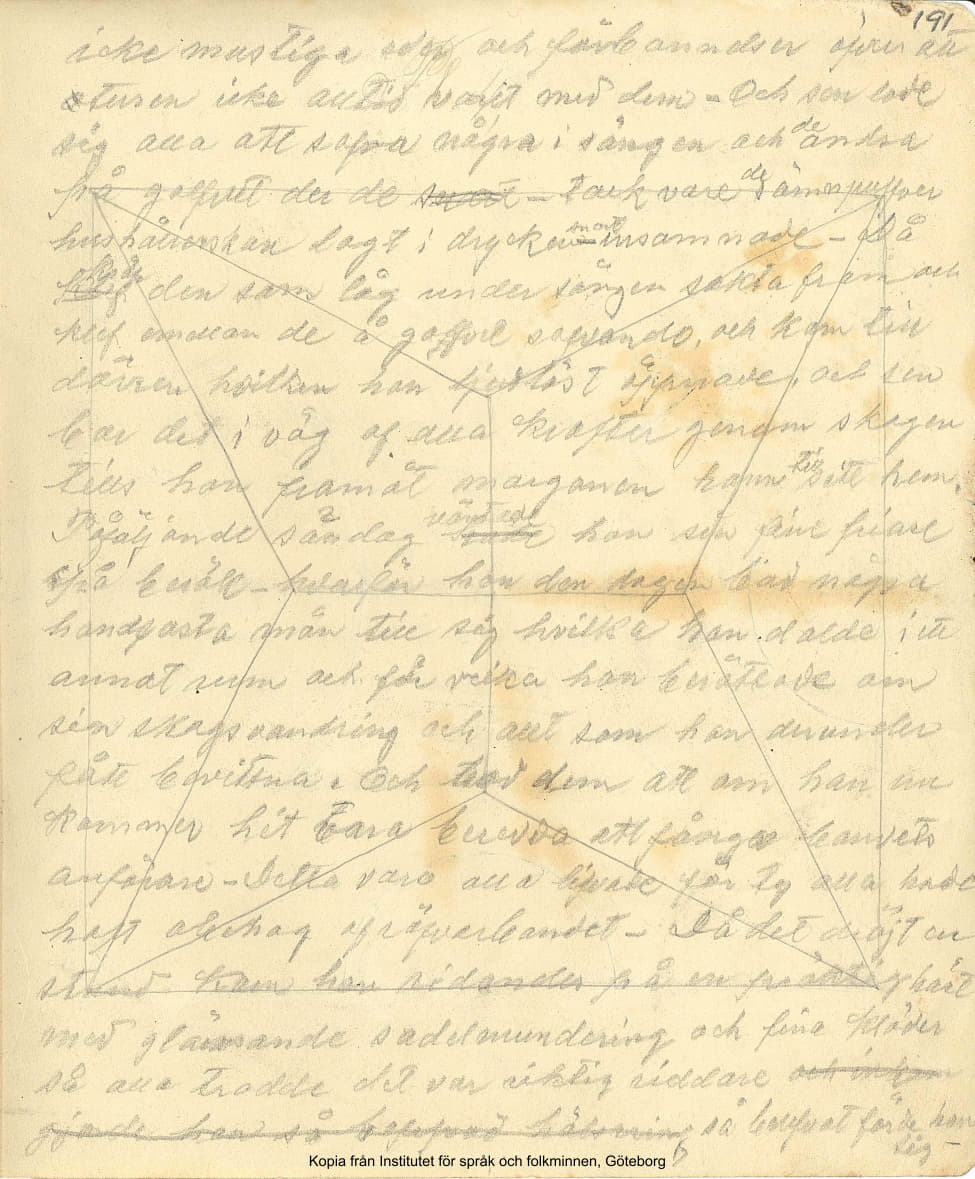 191
icke mustiga eder och förbannelser öfver att
tursen icke alltid varit med dem - Och sen lade
sig alla att sofva några i sängen och de andra
på golfvet der de snart - Tack vare de sömnpulfver
hushållerskan lagt i drycken snart insomnade - Då
den som låg under sängen sakta fram och
klef emellan de å golfvet sofvande, och kom till
dörren hvilken han ljudlöst öppnade, och sen
bar det i väg af alla krafter genom skogen
tills han framåt morgonen hann till sitt hem.
Påföljande söndag väntade han sin fine friare
på besök - hvarför han den dagen bad några
handfasta män till sig hvilka han dolde i ett
annat rum och för vilka han berättade om
sin skogsvandring och allt som han derunder
fått bevittna. Och bad dem att om han nu
kommer hit vara beredda att fånga bandets
anförare - Detta voro alla lifvade för ty alla hade
haft obehag af röfvarbandet - Då det dröjt en
stund kom han ridandes på en präktig häst
med glänsande sadelmundering och fina kläder
så alla trodde det var riktig riddare och
gjorde han så belefvad hälsning så belefvat förde han
sig -
Kopia från Institutet för språk och folkminnen, Göteborg